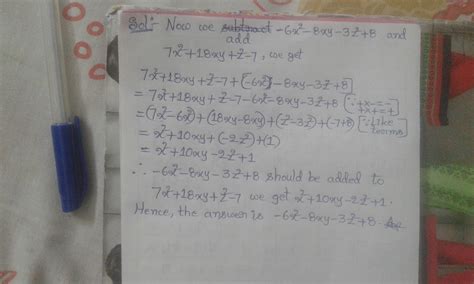 Sol:- Now we subtract -6x²-8xy-3z²+8 and
add
7x²+18xy+z²-7, we get
7x²+18xy+z²-7+(-6x²-8xy-3z²+8)
= 7x²+18xy+z²-7-6x²-8xy-3z²+8 [∵+x-=- +x+=+]
= (7x²-6x²)+(18xy-8xy)+(z²-3z²)+(-7+8) [∵Like terms]
= x²+10xy+(-2z²)+(1)
= x²+10xy-2z²+1
∴ -6x²-8xy-3z²+8 should be added to
7x²+18xy+z²-7 we get x²+10xy-2z²+1.
Hence, the answer is -6x²-8xy-3z²+8.